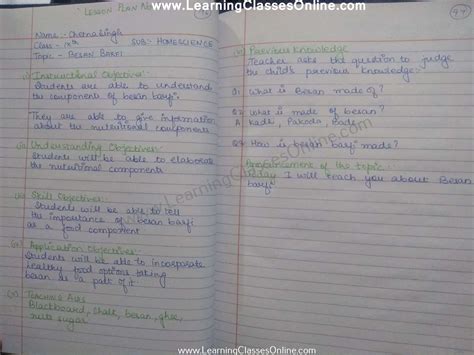 www.LearningClassesOnline.com
LESSON PLAN NO
Name:- Chetna Singh
Class:- IXth SUB:- HOMESCIENCE
Topic:- BESAN BARFI
(i) Instructional Objectives:-
Students are able to understand
the components of besan barfi.
They are able to give information
about the nutritional components
(ii) Understanding Objectives:-
Students will be able to elaborate
the nutritional components
(iii) Skill Objectives:-
Students will be able to tell
the importance of besan barfi
as a food component
(iv) Application Objectives:-
Students will be able to incorporate
healthy food options taking
besan as a part of it
(v) Teaching Aids
Blackboard, chalk, besan, ghee,
nuts sugar
(vi) Previous Knowledge
Teacher asks the question to judge
the child's previous knowledge.
Q What is Besan made of?
Q What is made of besan?
A Kadi, Pakoda,
Q How is besan barfi made?
Announcement of the topic
Today I will teach you about Besan
barfi
www.LearningClassesOnline.com
www.LearningClassesOnline.com